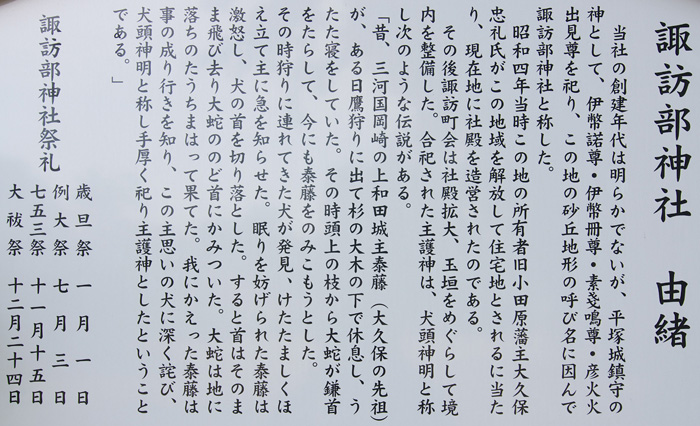 諏訪部神社 由緒
当社の創建年代は明らかでないが、平塚城鎮守の
神として、伊幣諾尊・伊幣冊尊・素戔鳴尊・彦火火
出見尊を祀り、この地の砂丘地形の呼び名に因んで
諏訪部神社と称した。
昭和四年当時この地の所有者旧小田原藩主大久保
忠礼氏がこの地域を解放して住宅地とされるに当た
り、現在地に社殿を造営されたのである。
その後諏訪町会は社殿拡大、玉垣をめぐらして境
内を整備した。合祀された主護神は、犬頭神明と称
し次のような伝説がある。
「昔、三河国岡崎の上和田城主泰藤（大久保の先祖）
が、ある日鷹狩りに出て杉の大木の下で休息し、う
たた寝をしていた。その時頭上の枝から大蛇が鎌首
をたらして、今にも泰藤をのみこもうとした。
その時狩りに連れてきた犬が発見、けたたましくほ
え立て主に急を知らせた。眠りを妨げられた泰藤は
激怒し、犬の首を切り落とした。すると首はそのま
ま飛び去り大蛇ののど首にかみついた。大蛇は地に
落ちのたうちまはって果てた。我にかえった泰藤は
事の成り行きを知り、この主思いの犬に深く詫び、
犬頭神明と称し手厚く祀り主護神としたということ
である。」
諏訪部神社祭礼
歳旦祭 一月一日
例大祭 七月三日
七五三祭 十一月十五日
大祓祭 十二月二十四日